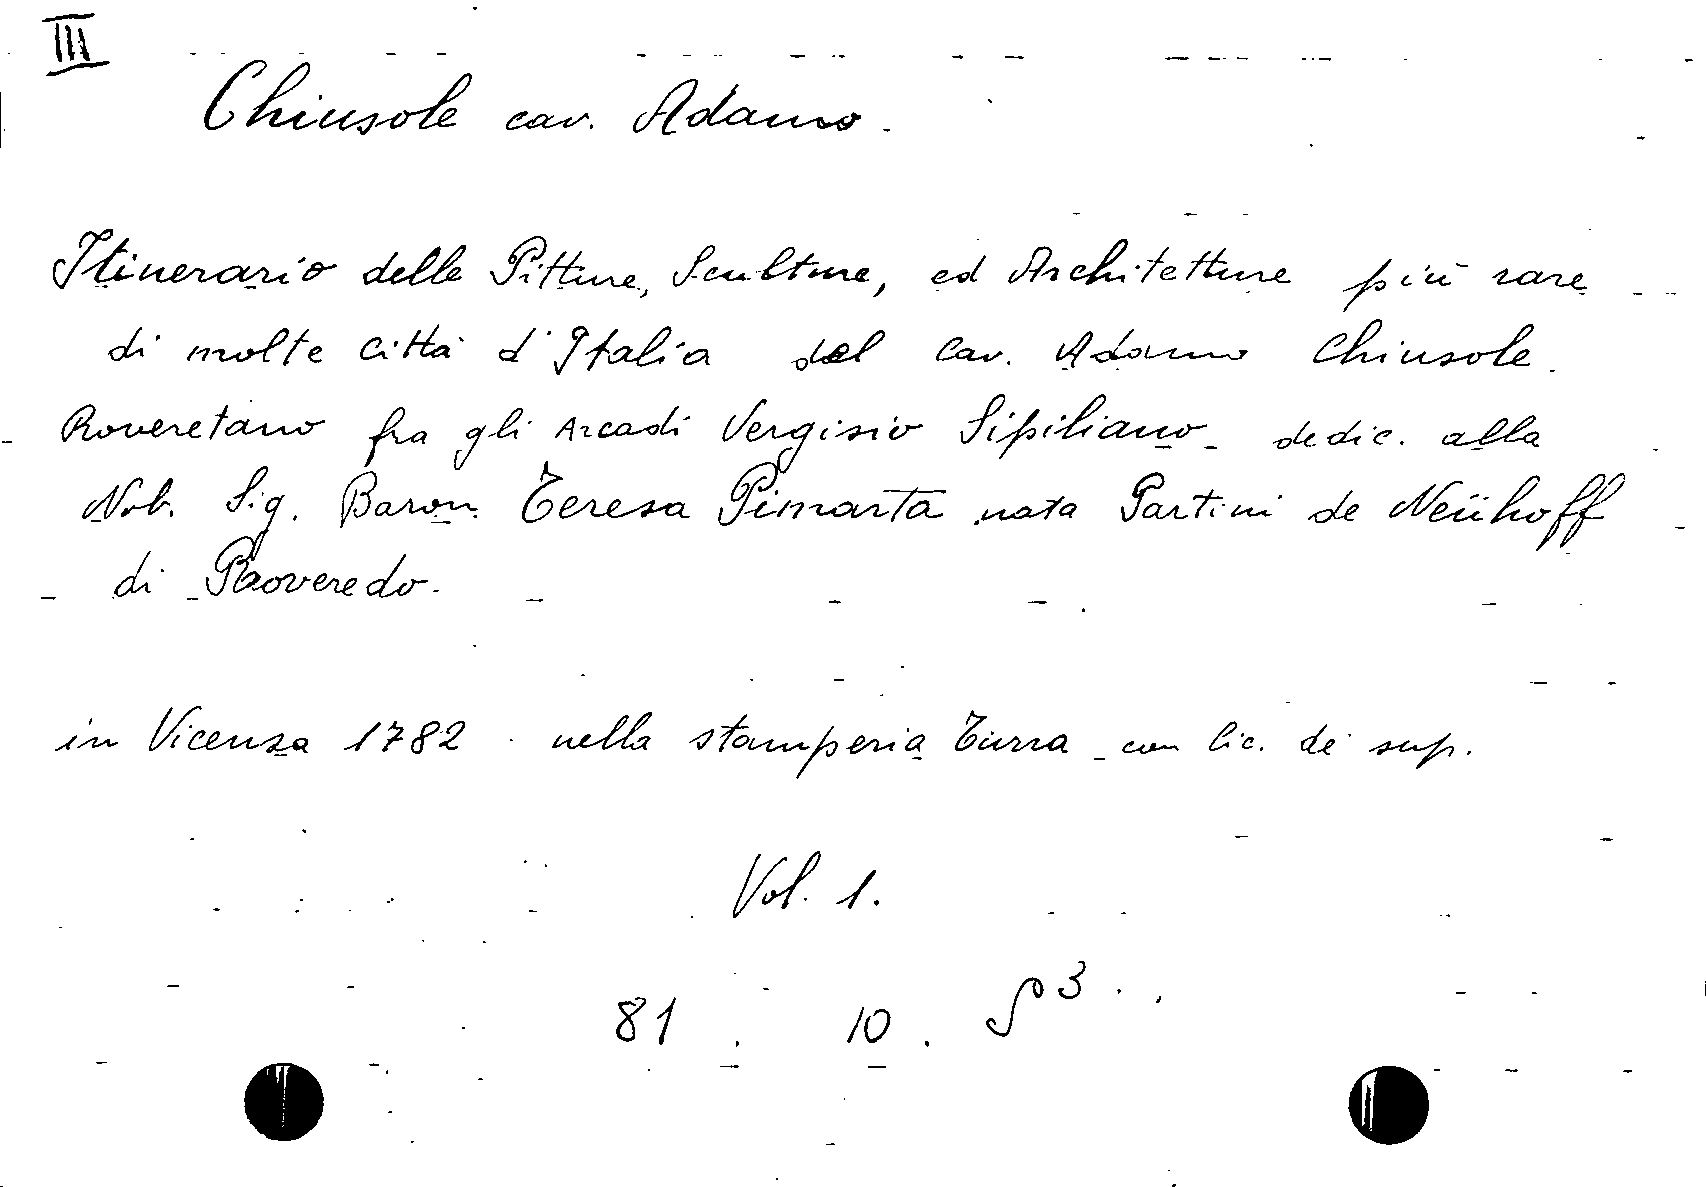 III
Chiusole cav. Adamo.
Itinerario delle Pitture, Sculture, ed Architetture più rare
di molte città d'Italia del Cav. Adamo Chiusole.
Roveretano fra gli Arcadi Vergisio Sipiliano dedic. alla
Nob. Sig. Baron. Teresa Pimarta nata Partini de Neühoff
di Roveredo.
in Vicenza 1782. nella stamperia Turra con lic. de' sup.
Vol. 1.
81. 10. 3